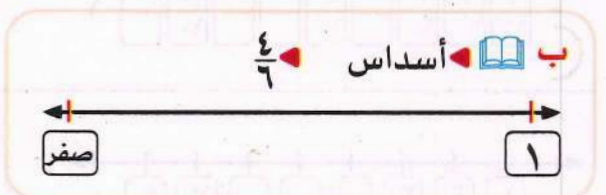 ب أسداس ٤/٦
١ صفر